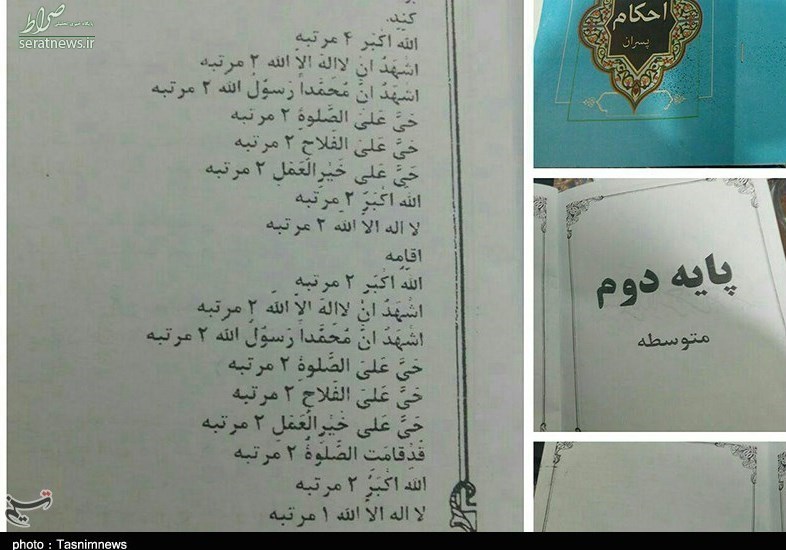 صراط
پایگاه خبری تحلیلی
seratnews.ir
کنید.
اللهُ اَکْبَر ۴ مرتبه
اَشْهَدُ اَنْ لااِلهَ اِلاَّ الله ۲ مرتبه
اَشْهَدُ اَنَّ مُحَمَّداً رَسوُلُ الله ۲ مرتبه
حَیَّ عَلیَ الصَّلوةِ ۲ مرتبه
حَیَّ عَلیَ الفَلاحِ ۲ مرتبه
حَیَّ عَلی خَیْرِالْعَمَلِ ۲ مرتبه
اللهُ اَکْبَرُ ۲ مرتبه
لا اله الاَّ الله ۲ مرتبه
اقامه
اللهُ اَکْبَرُ ۲ مرتبه
اَشْهَدُ اَنْ لااِلهَ اِلاَّ الله ۲ مرتبه
اَشْهَدُ اَنَّ مُحَمَّداً رَسوُلُ الله ۲ مرتبه
حَیَّ عَلیَ الصَّلوةِ ۲ مرتبه
حَیَّ عَلیَ الفَلاحِ ۲ مرتبه
حَیَّ عَلی خَیْرِالْعَمَلِ ۲ مرتبه
قَدْقامَتِ الصَّلوةُ ۲ مرتبه
اللهُ اَکْبَرُ ۲ مرتبه
لا اله الاَّ الله ۱ مرتبه
احکام
پسران
پایه دوم
متوسطه
تسنیم
photo : Tasnimnews